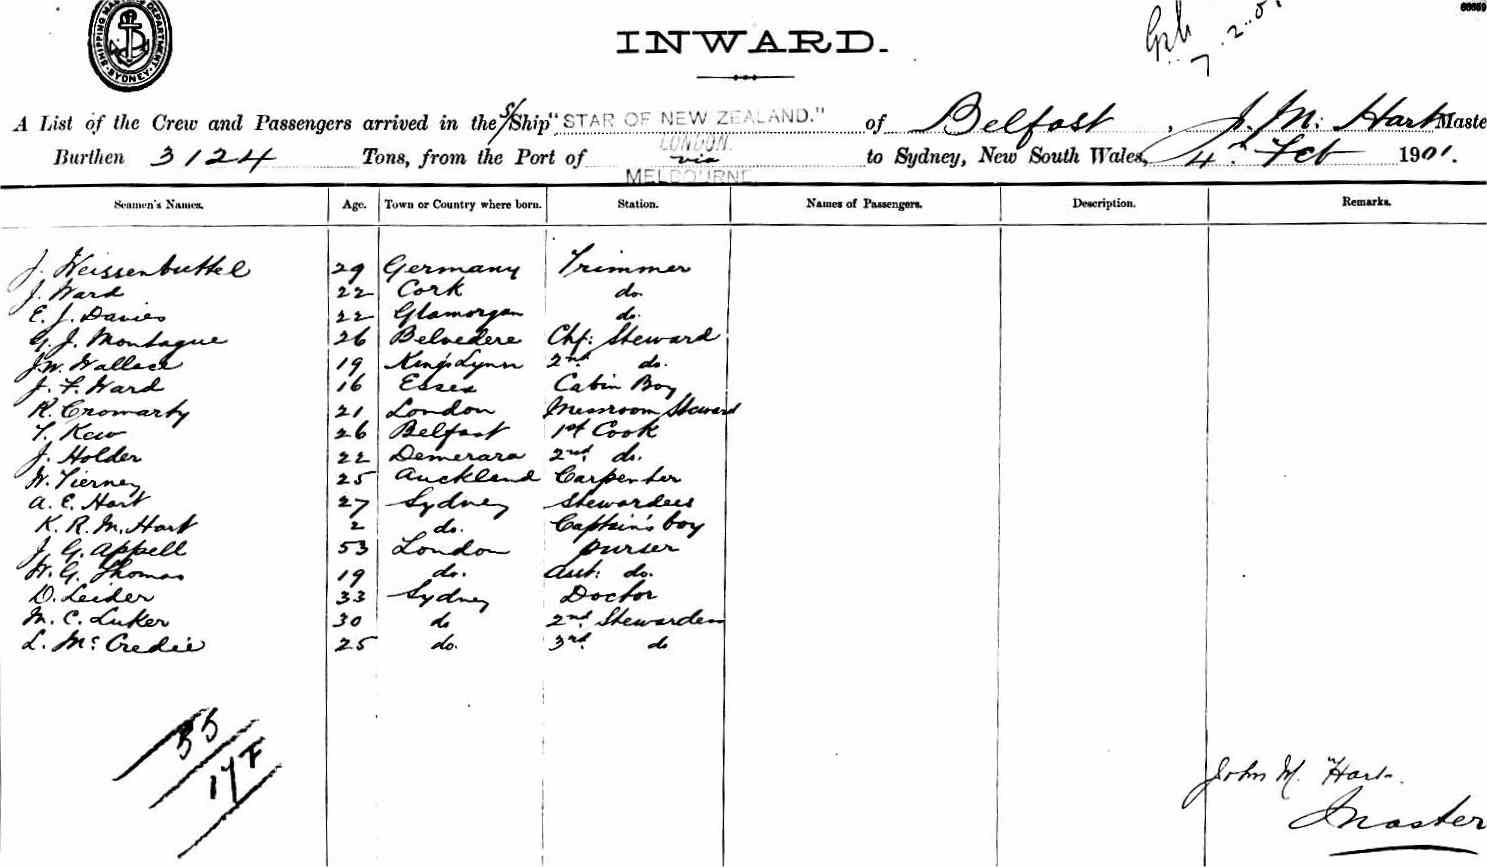 SHIPPING MASTERS DEPARTMENT. SYDNEY.
INWARD.
7.2.01
A List of the Crew and Passengers arrived in the S/Ship "STAR OF NEW ZEALAND." of Belfast, J. M. Hart Maste
Burthen 3124 Tons, from the Port of LONDON. via MELBOURNE to Sydney, New South Wales, 4th Feb 1901.
Seamen's Names. Age. Town or Country where born. Station. Names of Passengers. Description. Remarks.
J. Weissenbuttel 29 Germany Trimmer
J. Ward 22 Cork do.
E. J. Davies 22 Glamorgan do.
G. J. Montague 26 Belvedere Chf: Steward
J. W. Wallace 19 Kings Lynn 2nd do.
J. F. Ward 16 Essex Cabin Boy
R. Cromarty 21 London Messroom Steward
T. Kew 26 Belfast 1st Cook
J. Holder 22 Demerara 2nd do.
W. Tierney 25 Auckland Carpenter
A. E. Hart 27 Sydney Stewardess
K. R. M. Hart 2 do. Captain's boy
J. G. Appell 53 London Purser
W. G. Thomas 19 do. Asst: do.
D. Leider 33 Sydney Doctor
M. C. Luker 30 do 2nd Stewardess
L. McCredie 25 do. 3rd do
55
17F
John M. Hart.
Master